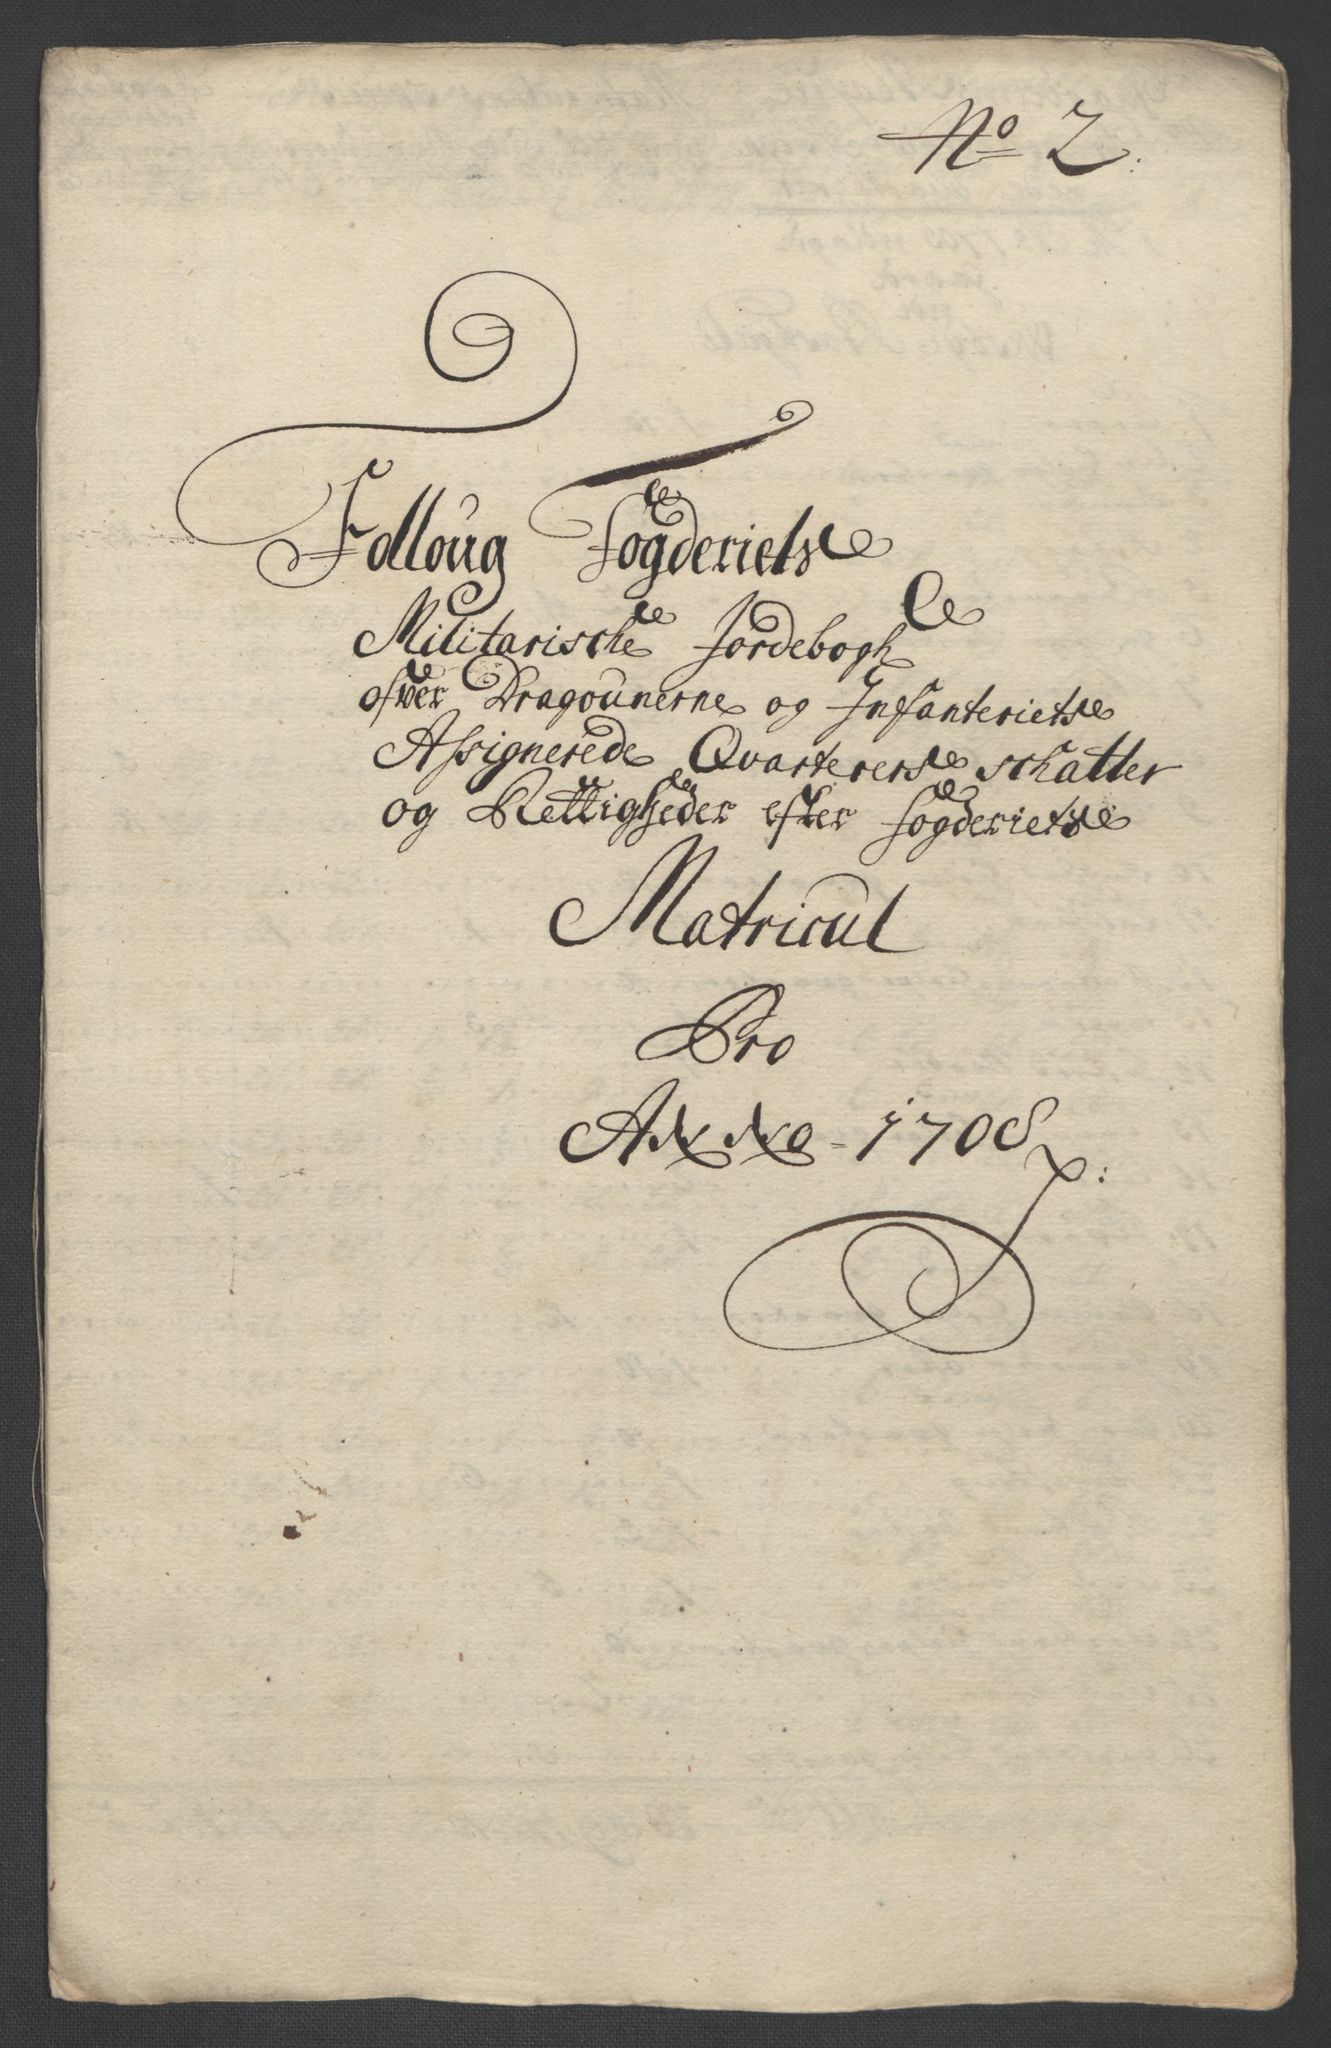 No 2.
Folloug Fogderiets
Militarische Jordebogh
ofver Dragounerne og Infanteriets
Assignerede Qvarterers schatter
og Rettigheder efter fogderiets
Matricul
Pro
Anno 1708